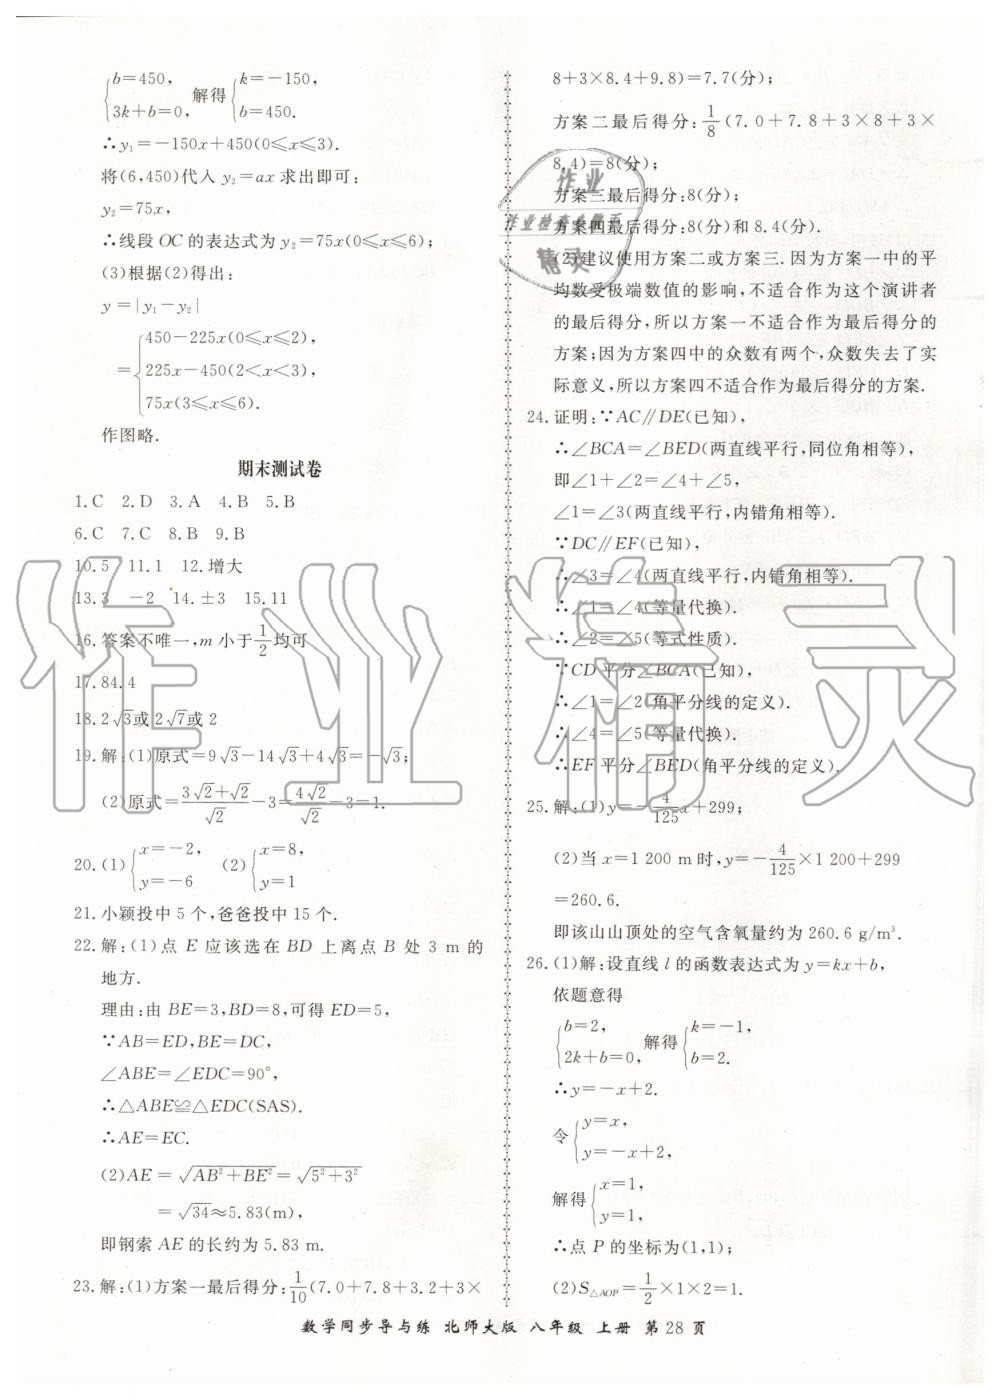 {b=450, 3k+b=0, 解得{k=-150, b=450.
∴y₁=-150x+450(0≤x≤3).
将(6,450)代入 y₂=ax 求出即可:
y₂=75x,
∴线段 OC 的表达式为 y₂=75x(0≤x≤6);
(3)根据(2)得出:
y=|y₁-y₂|
={450-225x(0≤x≤2),
225x-450(2<x<3),
75x(3≤x≤6).
作图略.
期末测试卷
1.C 2.D 3.A 4.B 5.B
6.C 7.C 8.B 9.B
10.5 11.1 12.增大
13.3 -2 14.±3 15.11
16.答案不唯一,m 小于1/2均可
17.84.4
18.2√3或2√7或 2
19.解:(1)原式=9√3-14√3+4√3=-√3;
(2)原式=(3√2+√2)/√2-3=4√2/√2-3=1.
20.(1){x=-2, y=-6 (2){x=8, y=1
21.小颖投中 5 个,爸爸投中 15 个.
22.解:(1)点 E 应该选在 BD 上离点 B 处 3 m 的
地方.
理由:由 BE=3,BD=8,可得 ED=5,
∵AB=ED,BE=DC,
∠ABE=∠EDC=90°,
∴△ABE≌△EDC(SAS).
∴AE=EC.
(2)AE=√(AB²+BE²)=√(5²+3²)
=√34≈5.83(m),
即钢索 AE 的长约为 5.83 m.
23.解:(1)方案一最后得分:1/10(7.0+7.8+3.2+3×
8+3×8.4+9.8)=7.7(分);
方案二最后得分:1/8(7.0+7.8+3×8+3×
8.4)=8(分);
方案三最后得分:8(分);
方案四最后得分:8(分)和 8.4(分).
(2)建议使用方案二或方案三.因为方案一中的平
均数受极端数值的影响,不适合作为这个演讲者
的最后得分,所以方案一不适合作为最后得分的
方案;因为方案四中的众数有两个,众数失去了实
际意义,所以方案四不适合作为最后得分的方案.
24.证明:∵AC∥DE(已知),
∴∠BCA=∠BED(两直线平行,同位角相等),
即∠1+∠2=∠4+∠5,
∠1=∠3(两直线平行,内错角相等).
∵DC∥EF(已知),
∴∠3=∠4(两直线平行,内错角相等).
∴∠1=∠4(等量代换).
∴∠2=∠5(等式性质).
∵CD 平分∠BCA(已知),
∴∠1=∠2(角平分线的定义).
∴∠4=∠5(等量代换).
∴EF 平分∠BED(角平分线的定义).
25.解:(1)y=-4/125x+299;
(2)当 x=1 200 m 时,y=-4/125×1 200+299
=260.6.
即该山山顶处的空气含氧量约为 260.6 g/m³.
26.(1)解:设直线 l 的函数表达式为 y=kx+b,
依题意得
{b=2, 2k+b=0, 解得{k=-1, b=2.
∴y=-x+2.
令{y=x, y=-x+2,
解得{x=1, y=1,
∴点 P 的坐标为(1,1);
(2)S△AOP=1/2×1×2=1.
数学同步导与练 北师大版 八年级 上册 第28页
作业精灵
作业
精灵